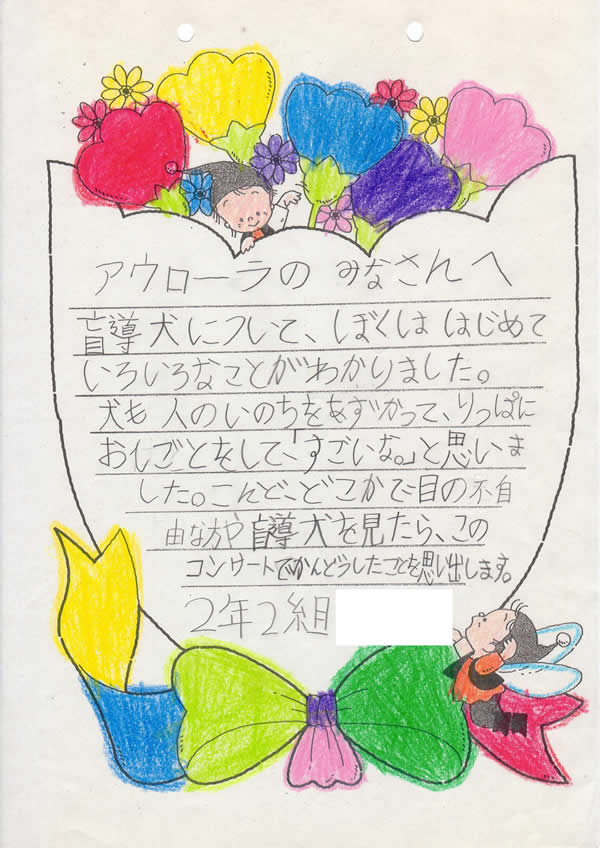 アウローラの みなさんへ
盲導犬について、ぼくは はじめて
いろいろなことがわかりました。
犬も 人のいのちをあずかって、りっぱに
おしごとをして、「すごいな。」と思いま
した。こんど、どこかで目の不自
由な方や盲導犬を見たら、この
コンサートでかんどうしたことを思い出します。
2年2組